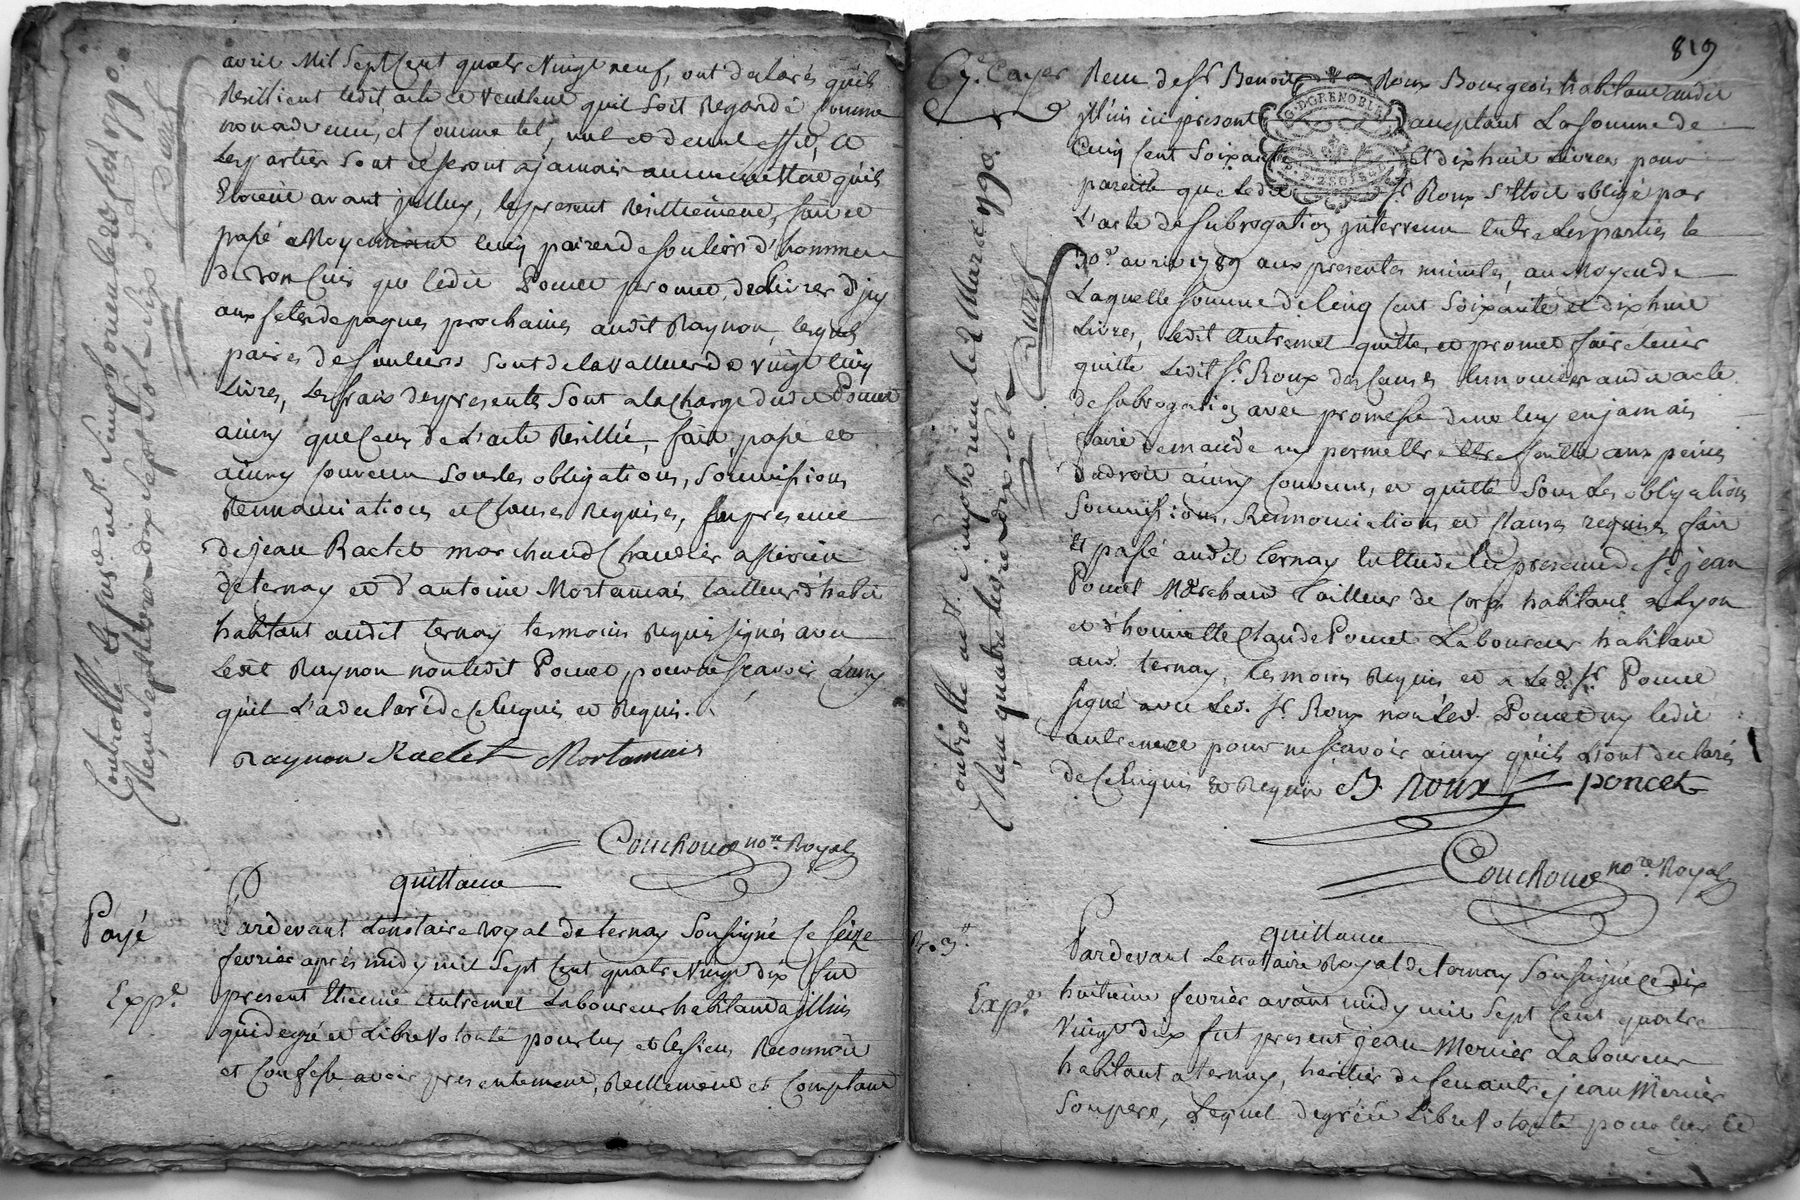 avril Mil Sept Cent quatre Vingt neuf, ont declarés qu'ils
Resillient ledit acte et veullent quil soit Regardé Comme
nonadvenu, et Comme tel, nul et de nul effet, et
Les parties sont et seront ajamais au meme Etat qu'ils
Etoient avant jcelluy, le present Resilliement, fait et
passé a Moyennant Cinq paires de souliers d'hommes
de bon Cuir que ledit Poncet promet, de delivrer d'jcy
aux fetes de paques prochaines audit Raynon, lesquels
paires de souliers sont de la valleur de vingt Cinq
Livres, Les frais des presentes sont a la Charge dudit Poncet
ainsy que Ceux de L'acte Resillié, fait, passé et
ainsy Convenu sous les obligations, soumissions
Rennonciations et Clauses Requises, En presence
de jean Raclet marchand Chandier a
de ternay et d'antoine Mortamais tailleur d'habit
habitant audit ternay temoins Requis signés avec
Ledit Raynon non ledit Poncet pour ne sçavoir ainsy
qu'il L'a declaré de Ce Enquis et Requis.
Raynon Raclet Mortamais
Couchoud no.re Royal
quittance
Payé
Pardevant Le notaire Royal de ternay soussigné Ce seize
fevrier après midy mil sept Cent quatre Vingt dix fut
Exp.é
present Etienne Autremet Laboureur habitant a jllins
qui de gré et Libre Volonté pour luy et les siens Reconnoit
et Confesse avoir presentement, Reellement et Comptant
Controllé
819
67.e Cayer
Reçu de s.r Benoit Roux Bourgeois habitant audit
G. D. GRENOBLE
jllins ici present acceptant La somme de
Cinq Cent soixante Et dix huit Livres pour
pareille que ledit s.r Roux s'etoit obligé par
L'acte de subrogation jntervenu Entre Les parties le
30.e avril 1789 aux presentes minutes, au Moyen de
Laquelle somme de Cinq Cent soixante et dix huit
Livres, Ledit Autremet quitte, et promet faire tenir
quitte Ledit s.r Roux des Causes Ennoncées audit acte
de subrogation avec promesse de ne luy en jamais
faire demande ny permettre etre faitte aux peines
de droit ainsy Convenu, et quitté sous Les obligations
soumissions, Rennonciations et Clauses requises fait
et passé audit ternay Etude En presence de s.r jean
Poncet Marchand tailleur de Corps habitant a Lyon
et d'honnette Claude Poncet Laboureur habitant
aud. ternay, temoins Requis et a Led. s.r Poncet
signé avec Led. s.r Roux non Led. Poncet ny ledit
autremet pour ne sçavoir ainsy qu'ils L'ont declarés
de Ce Enquis et Requis B. Roux poncet
Couchoud no.re Royal
quittance
Pardevant Le notaire Royal de ternay soussigné Ce dix
Exp.é
huitieme fevrier avant midy mil sept Cent quatre
Vingt dix fut present jean Mercier Laboureur
habitant a ternay, heritier de feu autre jean Mercier
son pere, Lequel de gré et Libre Volonté pour luy et
Controllé